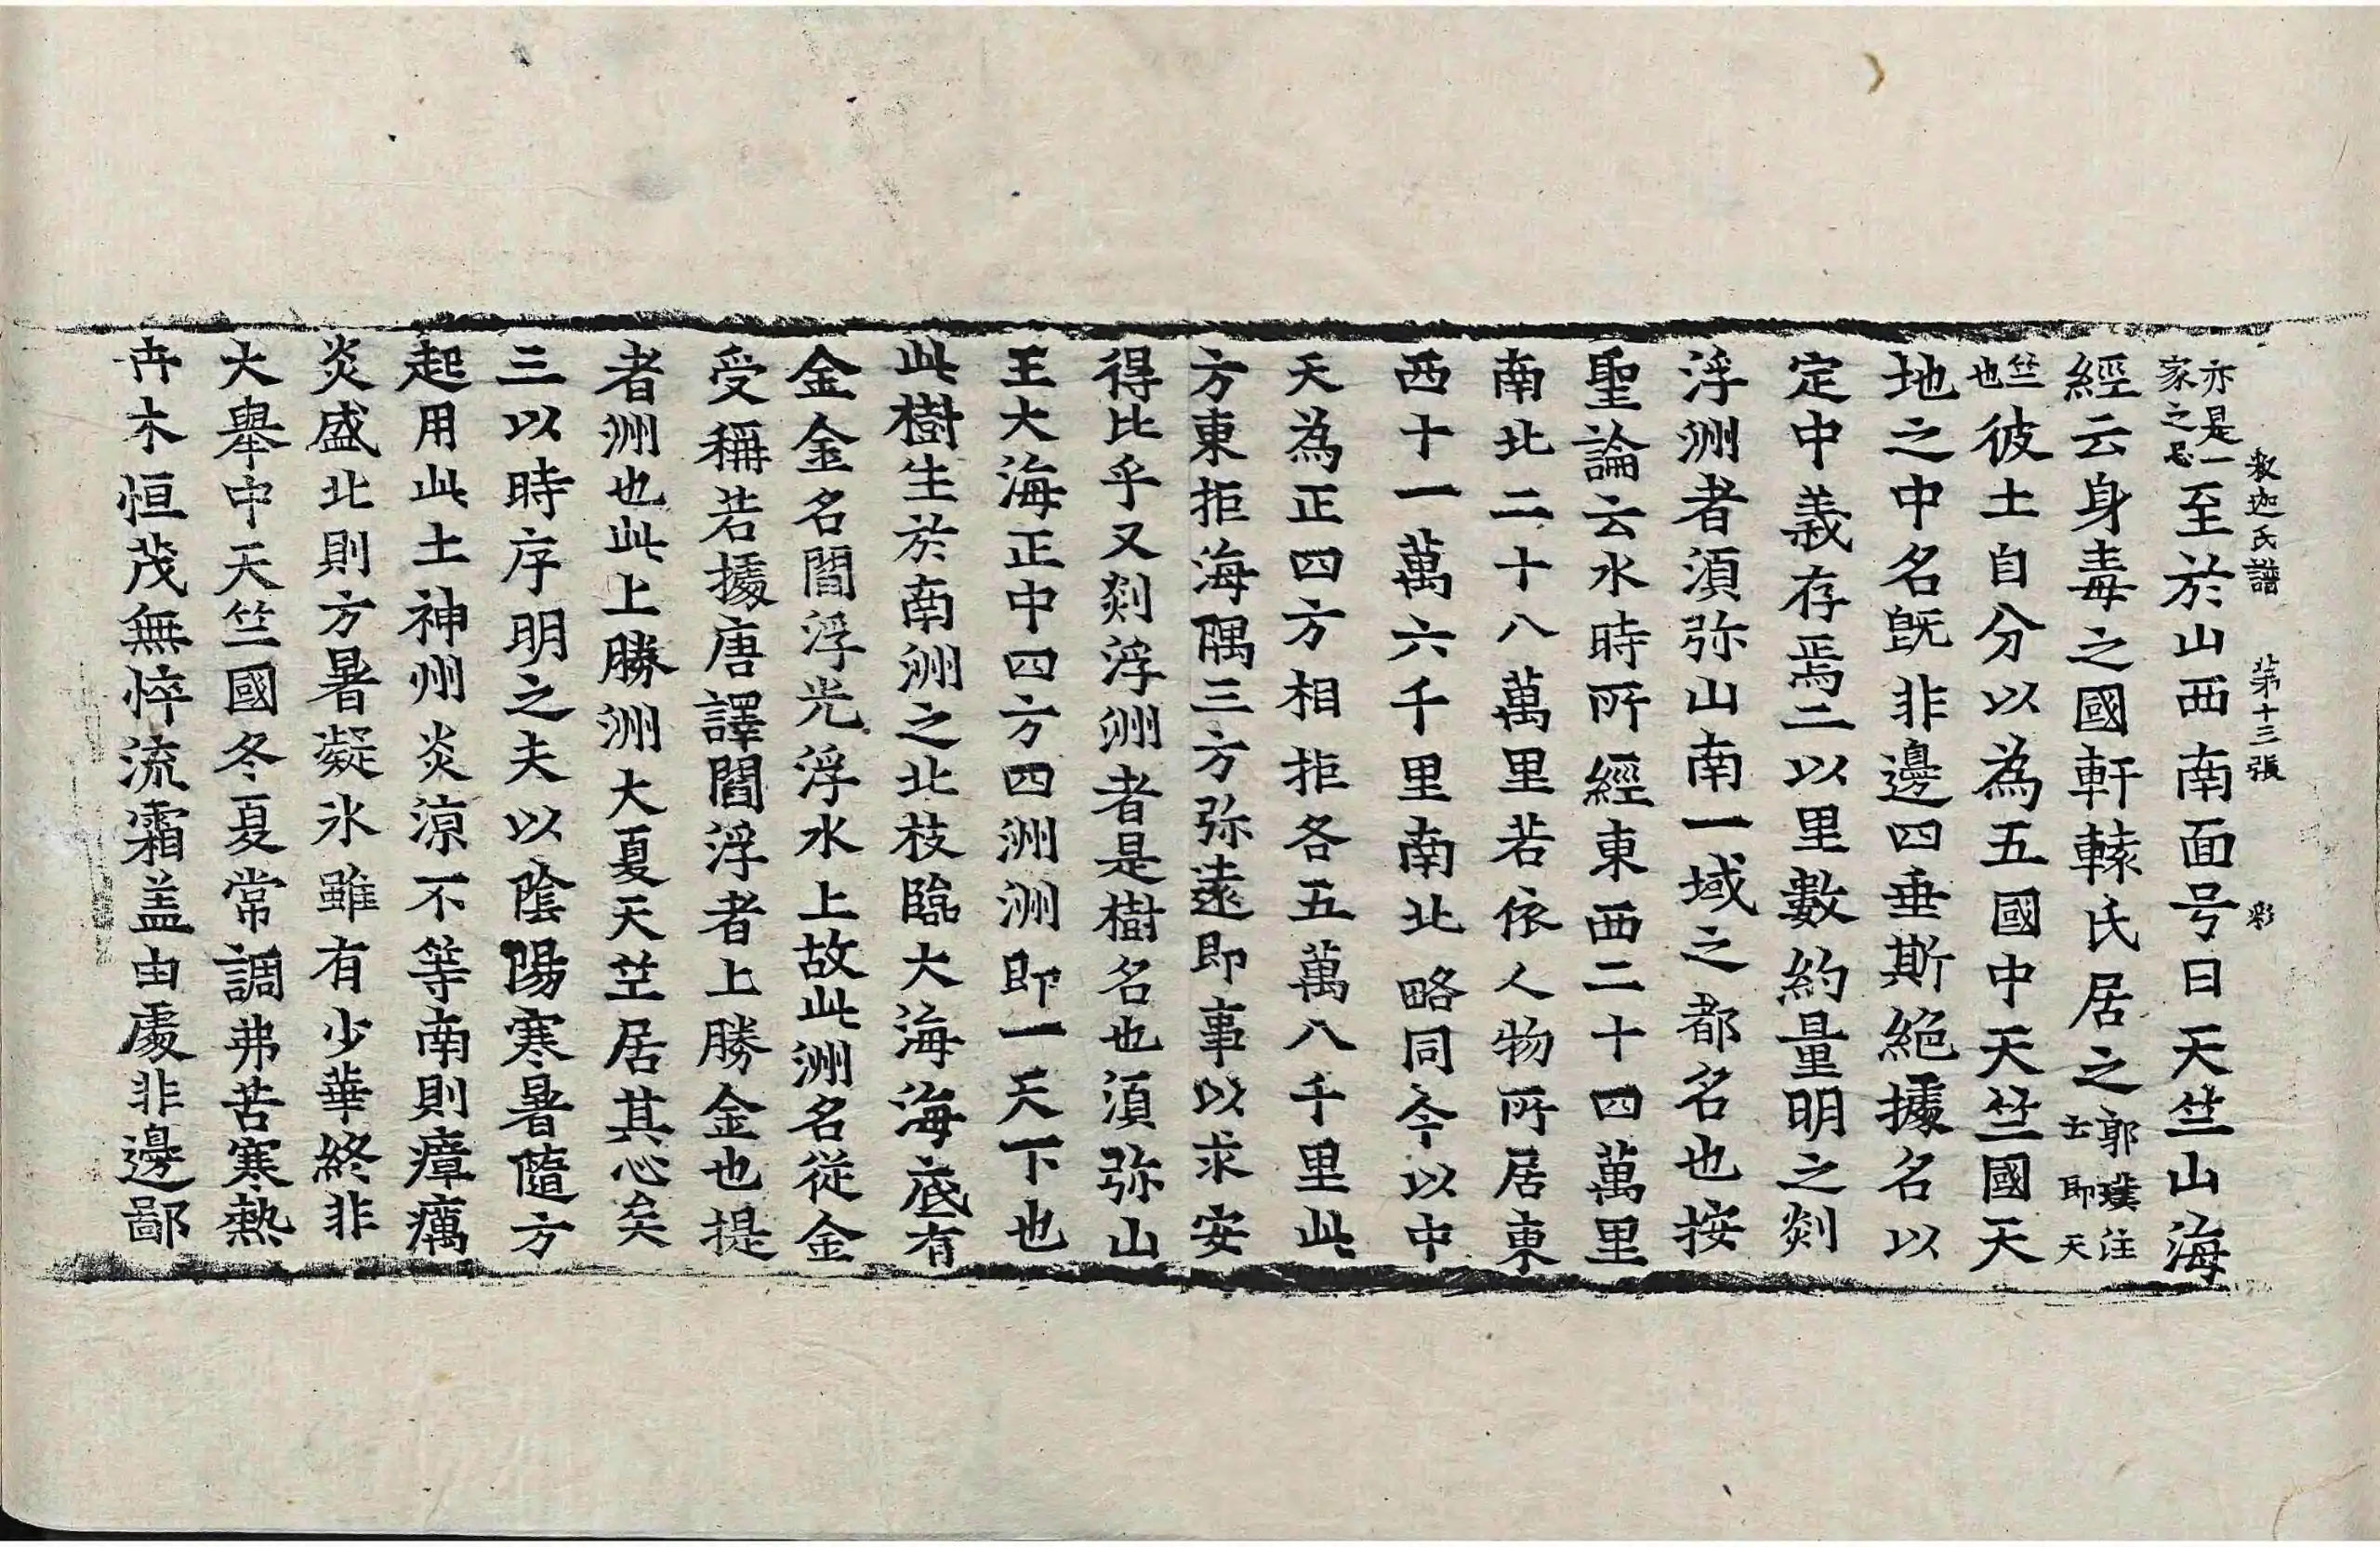 釋迦氏譜 第十三張 彩
亦是一家之忌至於山西南面号曰天竺山海
經云身毒之國軒轅氏居之郭璞注士即天
竺也彼土自分以為五國中天竺國天
地之中名旣非邊四垂斯絕據名以
定中義存焉二以里數約量明之剡
浮洲者須弥山南一域之都名也按
聖論云水時所經東西二十四萬里
南北二十八萬里若依人物所居東
西十一萬六千里南北略同今以中
天為正四方相拒各五萬八千里此
方東拒海隅三方弥遠即事以求安
得比乎又剡浮洲者是樹名也須弥山
王大海正中四方四洲洲即一天下也
此樹生於南洲之北枝臨大海海底有
金金名閻浮光浮水上故此洲名從金
受稱若據唐譯閻浮者上勝金也提
者洲也此上勝洲大夏天竺居其心矣
三以時序明之夫以陰陽寒暑隨方
起用此土神州炎涼不等南則瘴癘
炎盛北則方暑凝氷雖有少華終非
大舉中天竺國冬夏常調弗苦寒熱
卉木恒茂無悴流霜盖由處非邊鄙